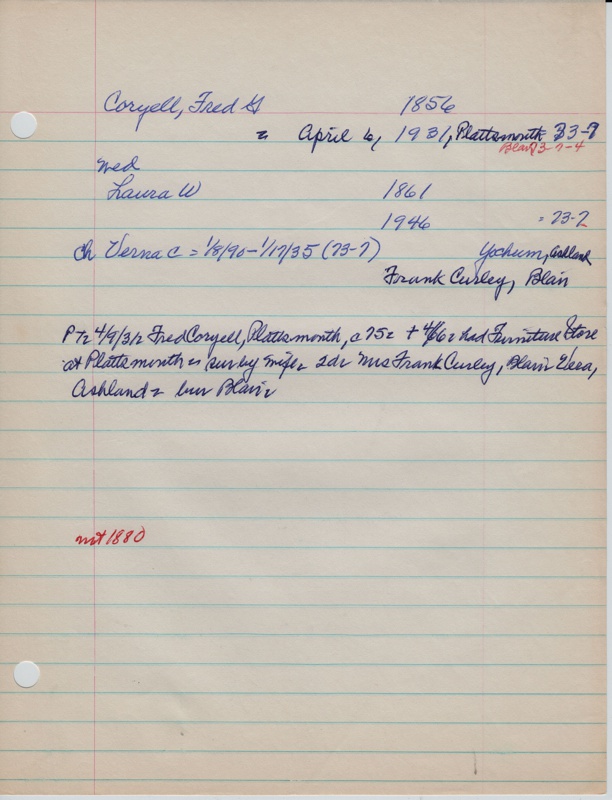 Coryell, Fred G 1856
= April 6, 1931, Plattsmouth 33-7
Blair 73-7-4
wed
Laura W 1861
1946 = 73-7
ch Verna C = 1/8/90-1/17/35 (73-7) Yochum, Ashland
Frank Curley, Blair
PT= 4/9/31= Fred Coryell, Plattsmouth, a 75= + 4/6= had Furniture Store
at Plattsmouth = sur by wife= 2d= Mrs Frank Curley, Blair= Vera,
Ashland = bur Blair=
not 1880